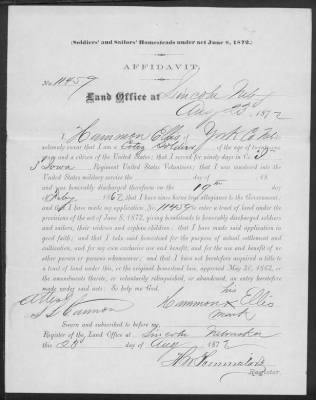 (Soldiers' and Sailors' Homesteads under act June 8, 1872.)
AFFIDAVIT.
No. 11459
Land Office at Lincoln Neby
Aug 23 1872
I, Hammon Ellis of York Co Neb
solemnly swear that I am a Soldier of the age of twenty-one
years and a citizen of the United States; that I served for ninety days in Co.
3 Iowa Regiment United States Volunteers; that I was mustered into the
United States military service the day of , 18
and was honorably discharged therefrom on the 19th day
of Feby 1862 that I have since borne true allegiance to the Government;
and that I have made application No. 11459 to enter a tract of land under the
provisions of the act of June 8, 1872, giving homesteads to honorably discharged soldiers
and sailors, their widows and orphan children; that I have made said application in
good faith; and that I take said homestead for the purpose of actual settlement and
cultivation, and for my own exclusive use and benefit, and for the use and benefit of no
other person or persons whomsoever; and that I have not heretofore acquired a title to
a tract of land under this, or the original homestead law, approved May 20, 1862, or
the amendments thereto, or voluntarily relinquished, or abandoned, an entry heretofore
made under said acts: So help me God.
Attest his
Cannon Hammon X Ellis
mark
Sworn and subscribed to before my
Register of the Land Office at Lincoln Nebraska
this 23 day of Aug 1872
Register.